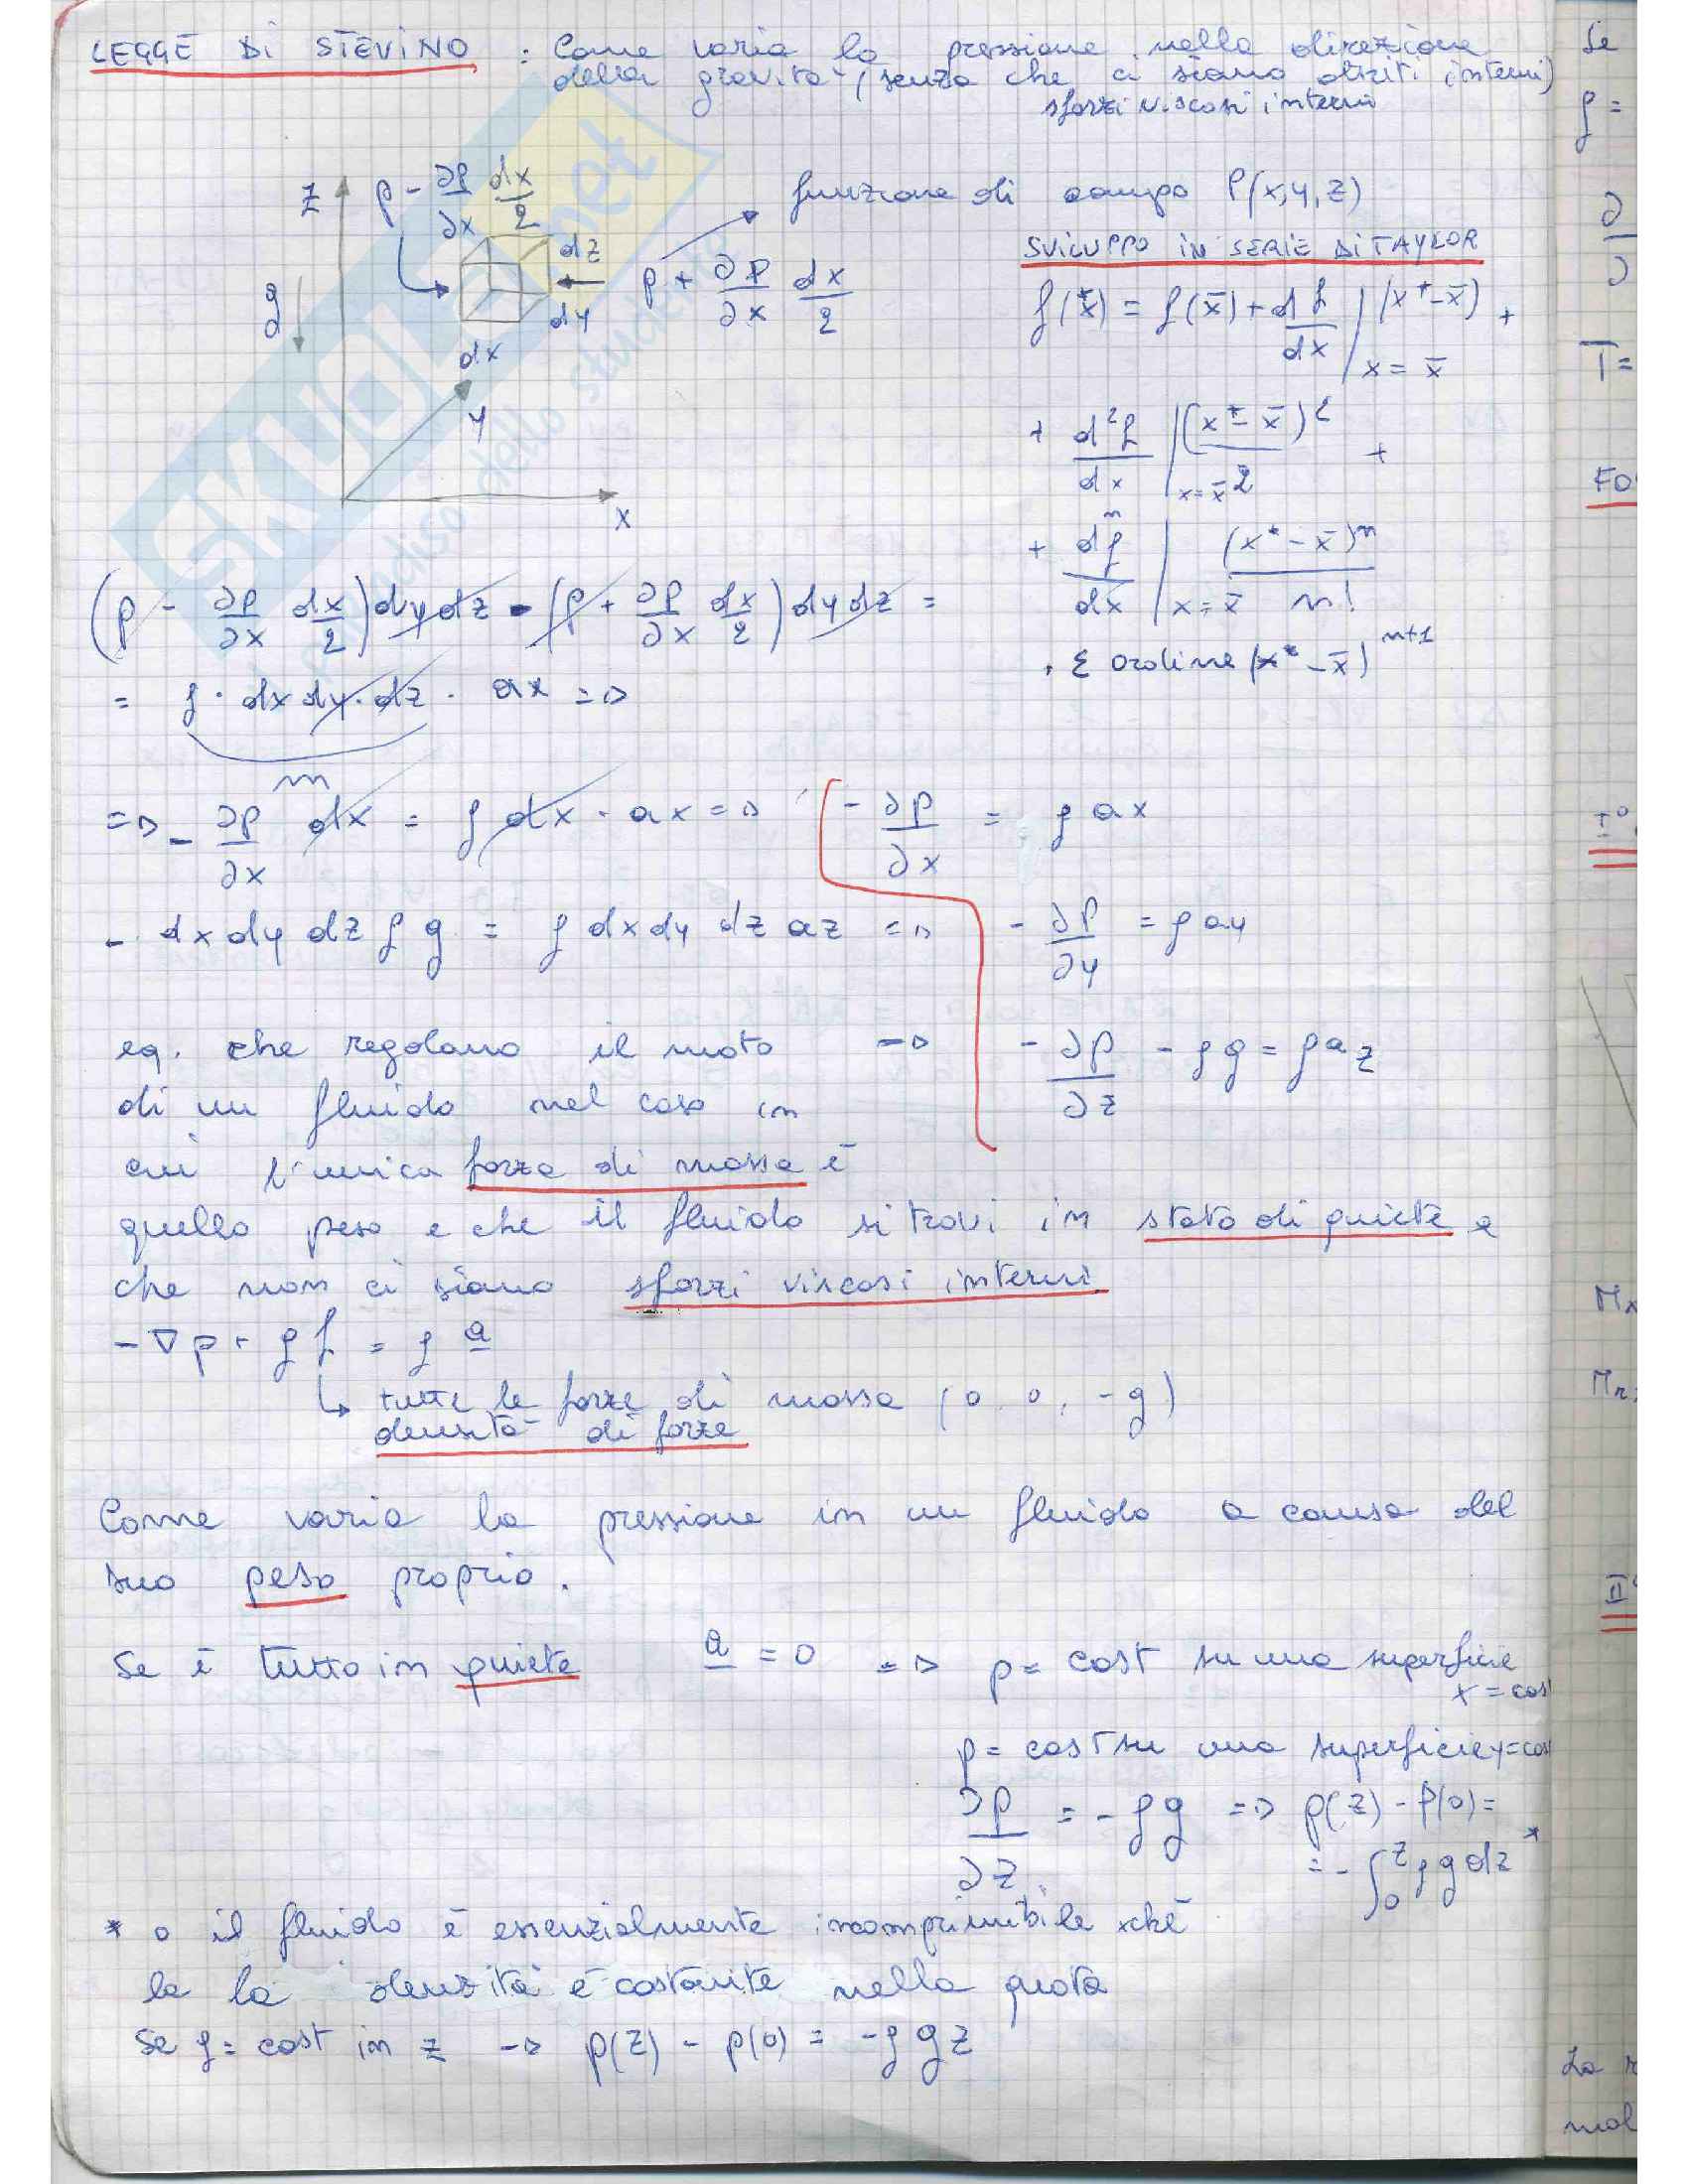 LEGGE DI STEVINO : Come varia la pressione nella direzione
della gravità (senza che ci siano attriti interni)
sforzi viscosi interni
z p - ∂p/∂x dx/2 funzione di campo P(x,y,z)
SVILUPPO IN SERIE DI TAYLOR
dz
g p + ∂p/∂x dx/2
dy
dx
y
x
f(x*) = f(x̄) + df/dx |x=x̄ (x*-x̄) +
+ d²f/dx |x=x̄ (x*-x̄)²/2 +
+ dⁿf/dx |x=x̄ (x*-x̄)ⁿ/n!
+ ε ordine (x*-x̄)ⁿ⁺¹
(p - ∂p/∂x dx/2) dy dz - (p + ∂p/∂x dx/2) dy dz =
= ρ · dx dy · dz · ax =>
m
=> - ∂p/∂x dx = ρ dx · ax => - ∂p/∂x = ρ ax
- dx dy dz ρ g = ρ dx dy dz az => - ∂p/∂y = ρ ay
eq. che regolano il moto -> - ∂p/∂z - ρg = ρ az
di un fluido nel caso in
cui l'unica forza di massa è
quella peso e che il fluido si trovi in stato di quiete e
che non ci siano sforzi viscosi interni.
-∇p + ρ f = ρ a
↳ tutte le forze di massa (0, 0, -g)
densità di forze
Come varia la pressione in un fluido a causa del
suo peso proprio.
Se è tutto in quiete a = 0 => p = cost su una superficie
x = cost
p = cost su una superficie y=cost
∂p/∂z = -ρg => p(z) - p(0) =
= - ∫₀ᶻ ρ g dz *
* o il fluido è essenzialmente incomprimibile xché
la la densità è costante nella quota
Se ρ = cost in z -> p(z) - p(0) = -ρ g z
Se
ρ =
∂
∂
T =
I°
II°
La
SKUOLA.net